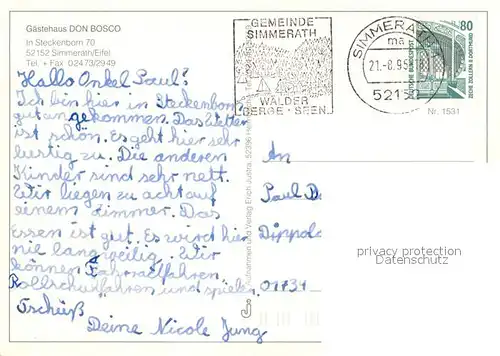 Gästehaus DON BOSCO
In Steckenborn 70
52152 Simmerath/Eifel
Tel. + Fax 02473/2949
Hallo Onkel Paul!
Ich bin hier in Steckenborn
gut angekommen. Das Wetter
ist schön. Es geht hier sehr
lustig zu. Die anderen
Kinder sind sehr nett.
Wir liegen zu acht auf
einem Zimmer. Das
Essen ist gut. Es wird hier
nie langweilig. Wir
können Fahrradfahren,
Rollschuhfahren und spielen.
Tschüß
Deine Nicole Jung
GEMEINDE
SIMMERATH
WÄLDER
BERGE · SEEN
SIMMERATH
ma
21.-8.95
5215
80
DEUTSCHE BUNDESPOST
ZECHE ZOLLERN II DORTMUND
Nr. 1531
Aufnahmen und Verlag Erich Justra, 52396
An
Paul
Dippol
01731
privacy protection
Datenschutz